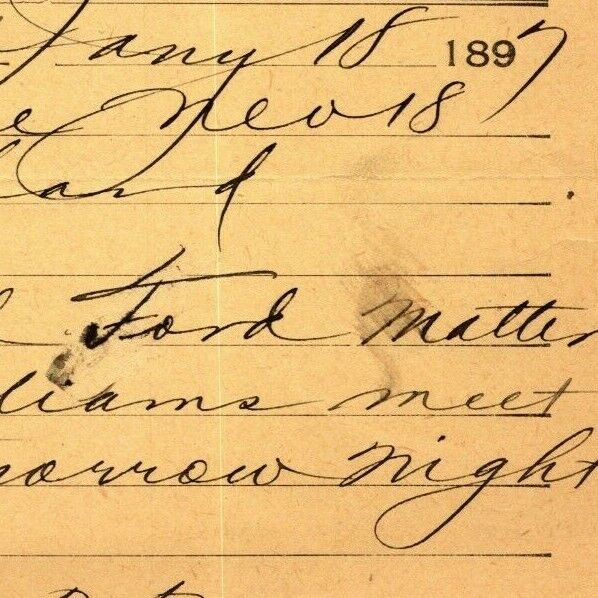 Jany 18 1897
e Neo 18
land
Ford matter
liams meet
morrow night